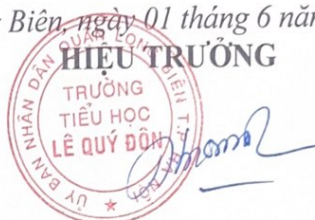 Biên, ngày 01 tháng 6 năm
HIỆU TRƯỞNG
ỦY BAN NHÂN DÂN QUẬN LONG BIÊN T.P HÀ NỘI
TRƯỜNG
TIỂU HỌC
LÊ QUÝ ĐÔN